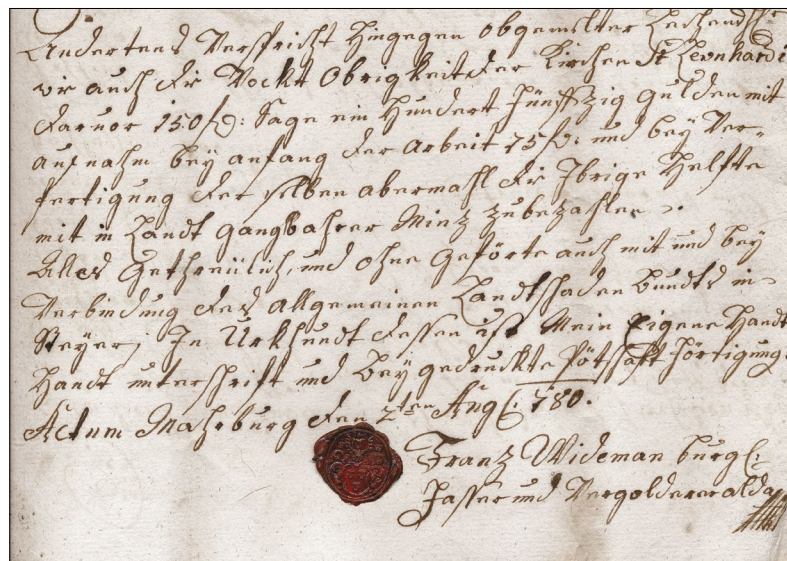 Andertens Verspricht hingegen obgemelter Zechendt
wie auch die Vockt Obrigkeit der Kirchen St Leonhardi
daruor 150 f: Sage ein Hundert Fünffzig gulden mit
aufnahm bey anfang der Arbeit 75 f: und bey Ver=
fertigung der selben abermahl die Ibrige Helfte
mit in Landt gangbahrer Minz zubezahlen.
Alles Getreülich, und ohne Geförte auch mit und bey
Verbindung des Allgemeinen Landtschaden bundts in
Steyer, In Urkhundt dessen ist Mein Eigene Handt
Handt unterschrift und beygedruckte Pötschaft förtigung.
Actum Mahrburg den 2ten Aug: 780.
Franz Wideman burgl:
Fasser und Vergolder alda